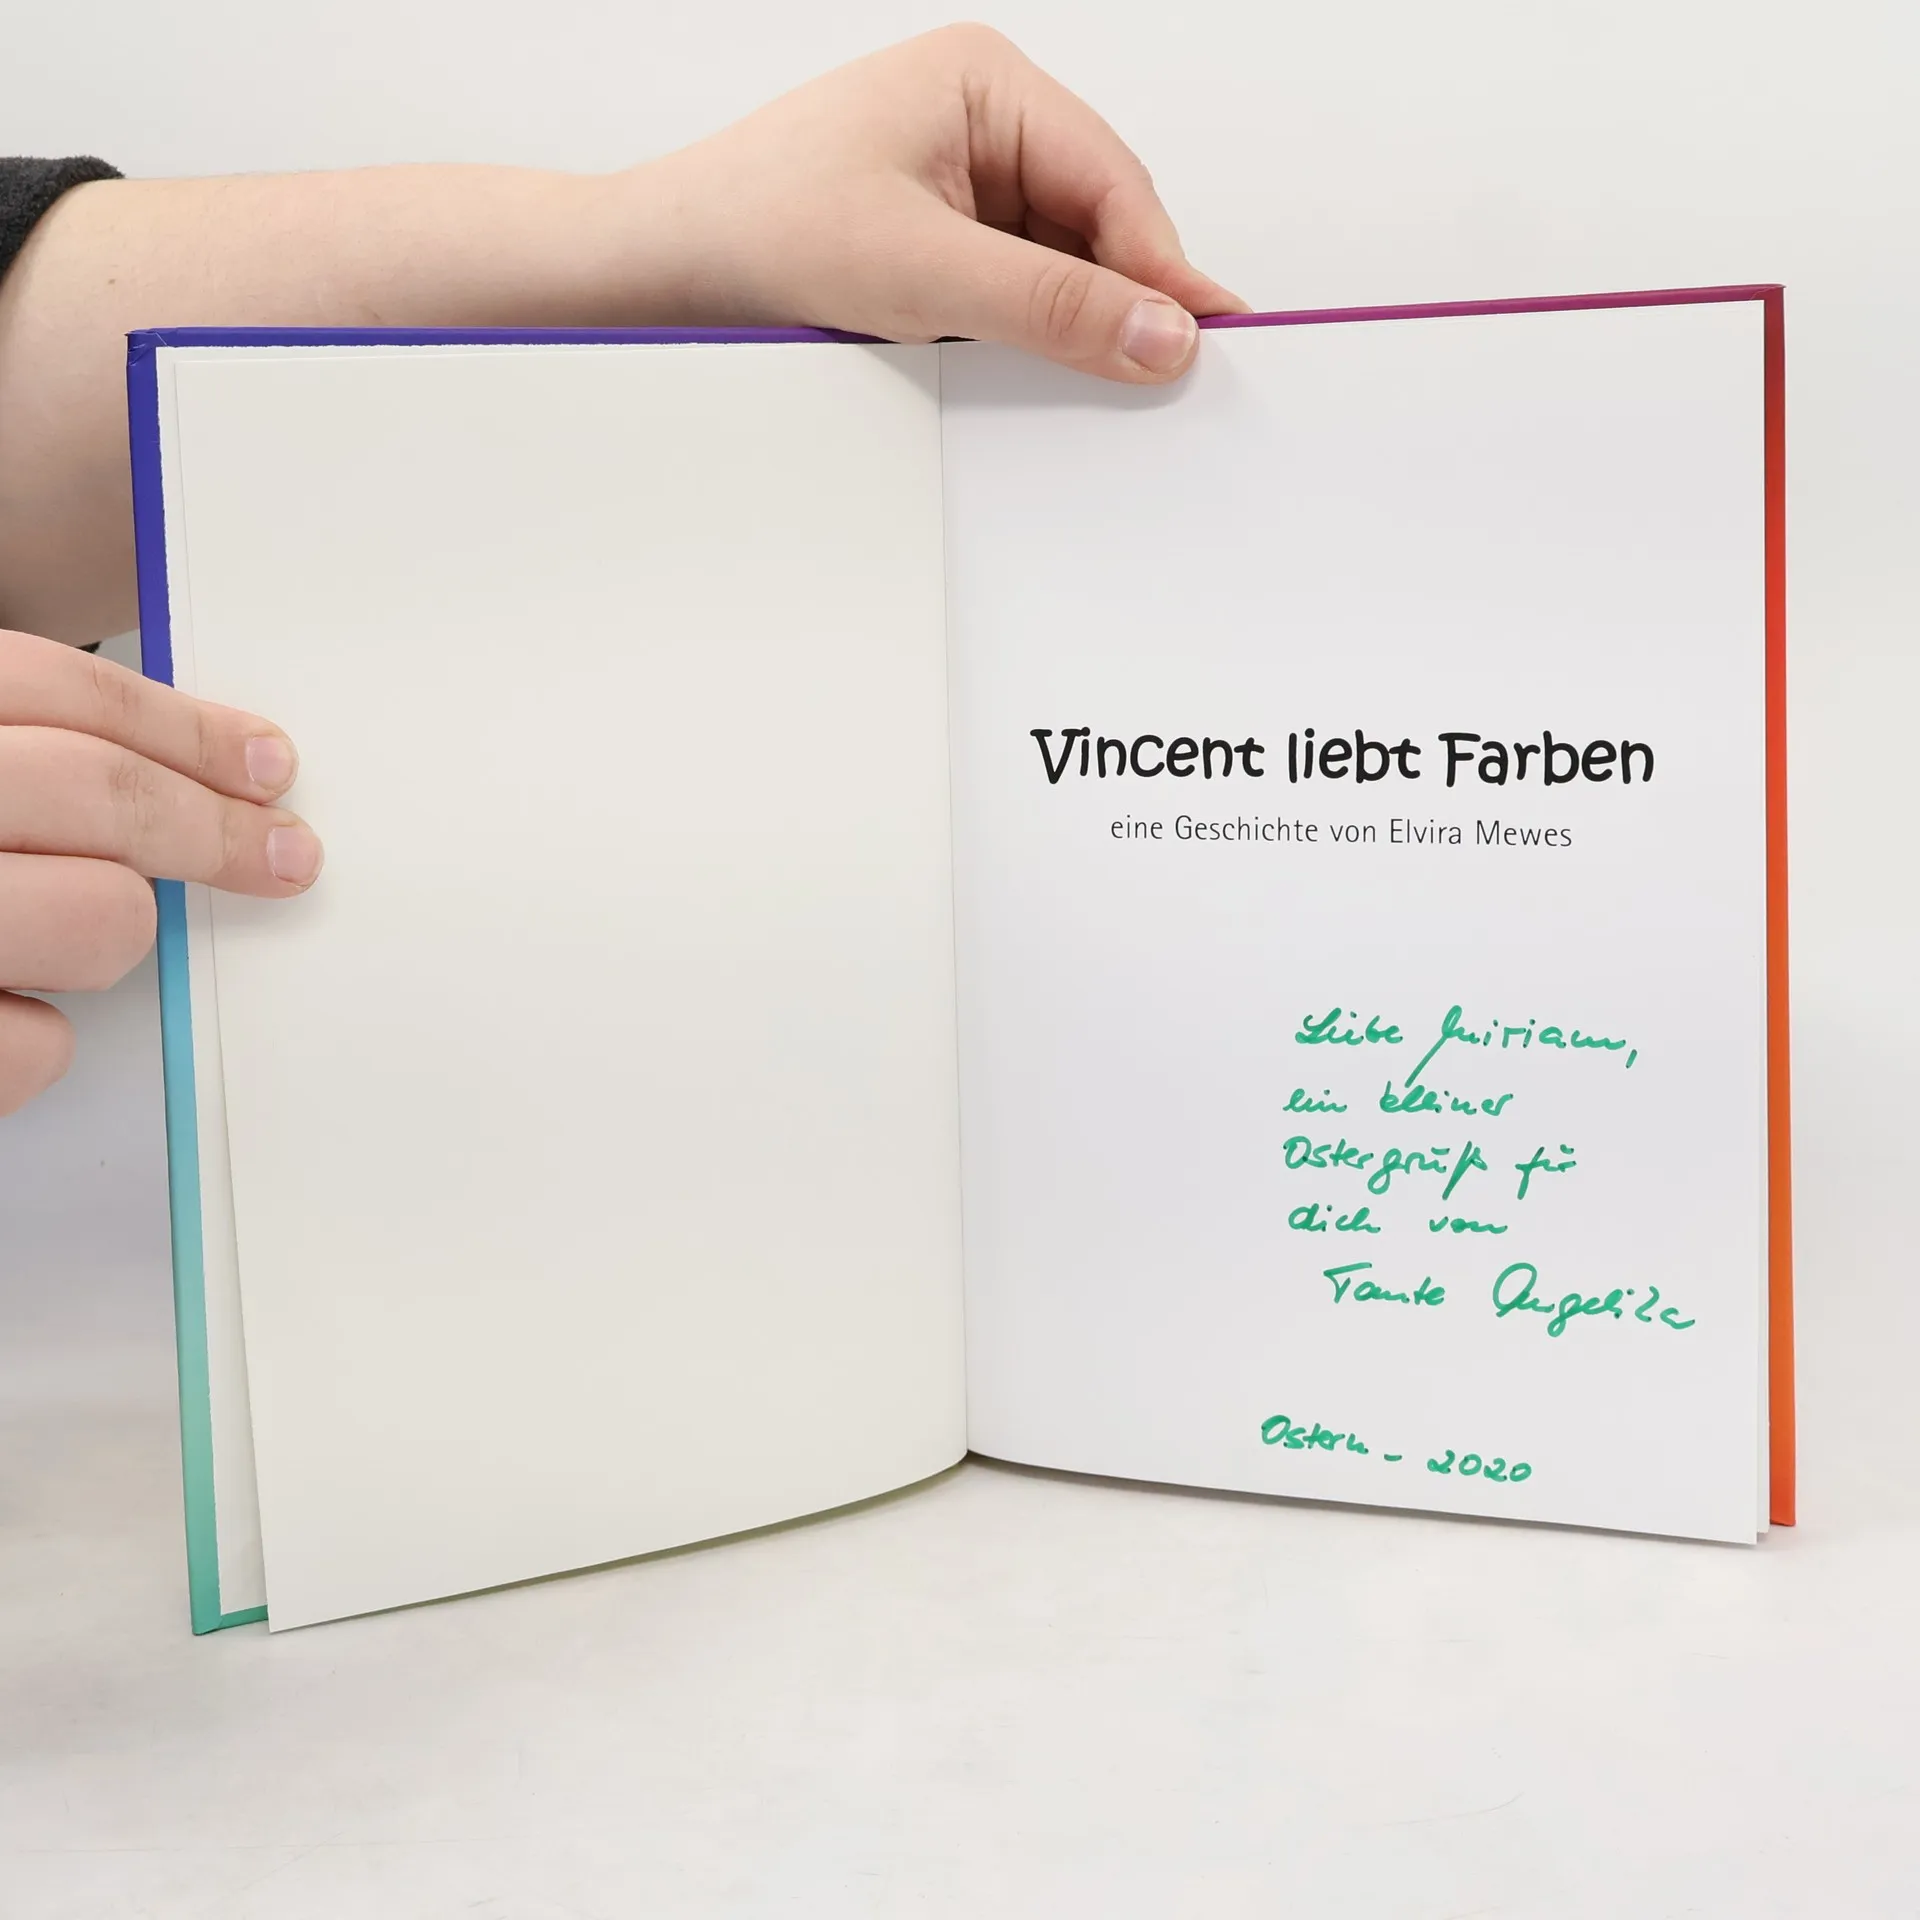 Vincent liebt Farben
eine Geschichte von Elvira Mewes
Liebe Miriam,
ein kleiner
Ostergruß für
dich von
Tante Angelika
Ostern - 2020